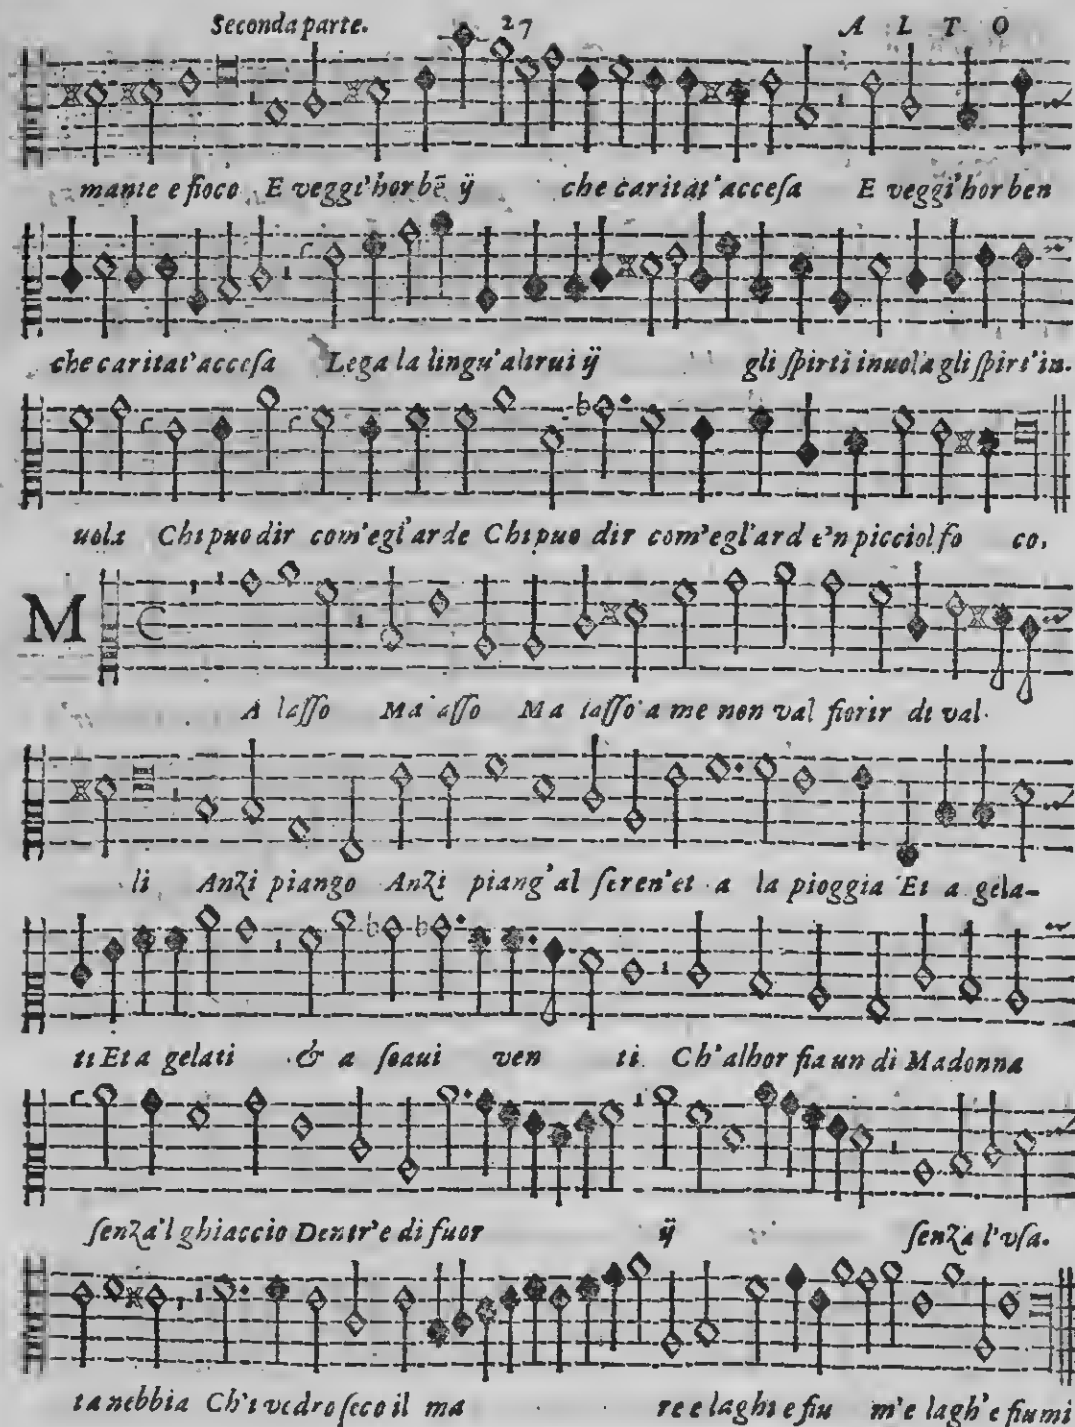 Seconda parte. 27 ALTO
mante e fioco E veggi'hor bē ij che caritat'accesa E veggi'hor ben
che caritat'accesa Lega la lingu'altrui ij gli spirti inuola gli spirt'in-
uola Chi puo dir com'egl'arde Chi puo dir com'egl'ard e'n picciol fo co.
M
A lasso Ma lasso Ma lasso a me non val fiorir di val-
li Anzi piango Anzi piang'al seren'et a la pioggia Et a gela-
ti Et a gelati & a soaui ven ti Ch'alhor fia un di Madonna
senza'l ghiaccio Dentr'e di fuor ij senza l'vsa-
ta nebbia Ch'i vedro seco il ma re e laghi e fiu m'e lagh'e fiumi